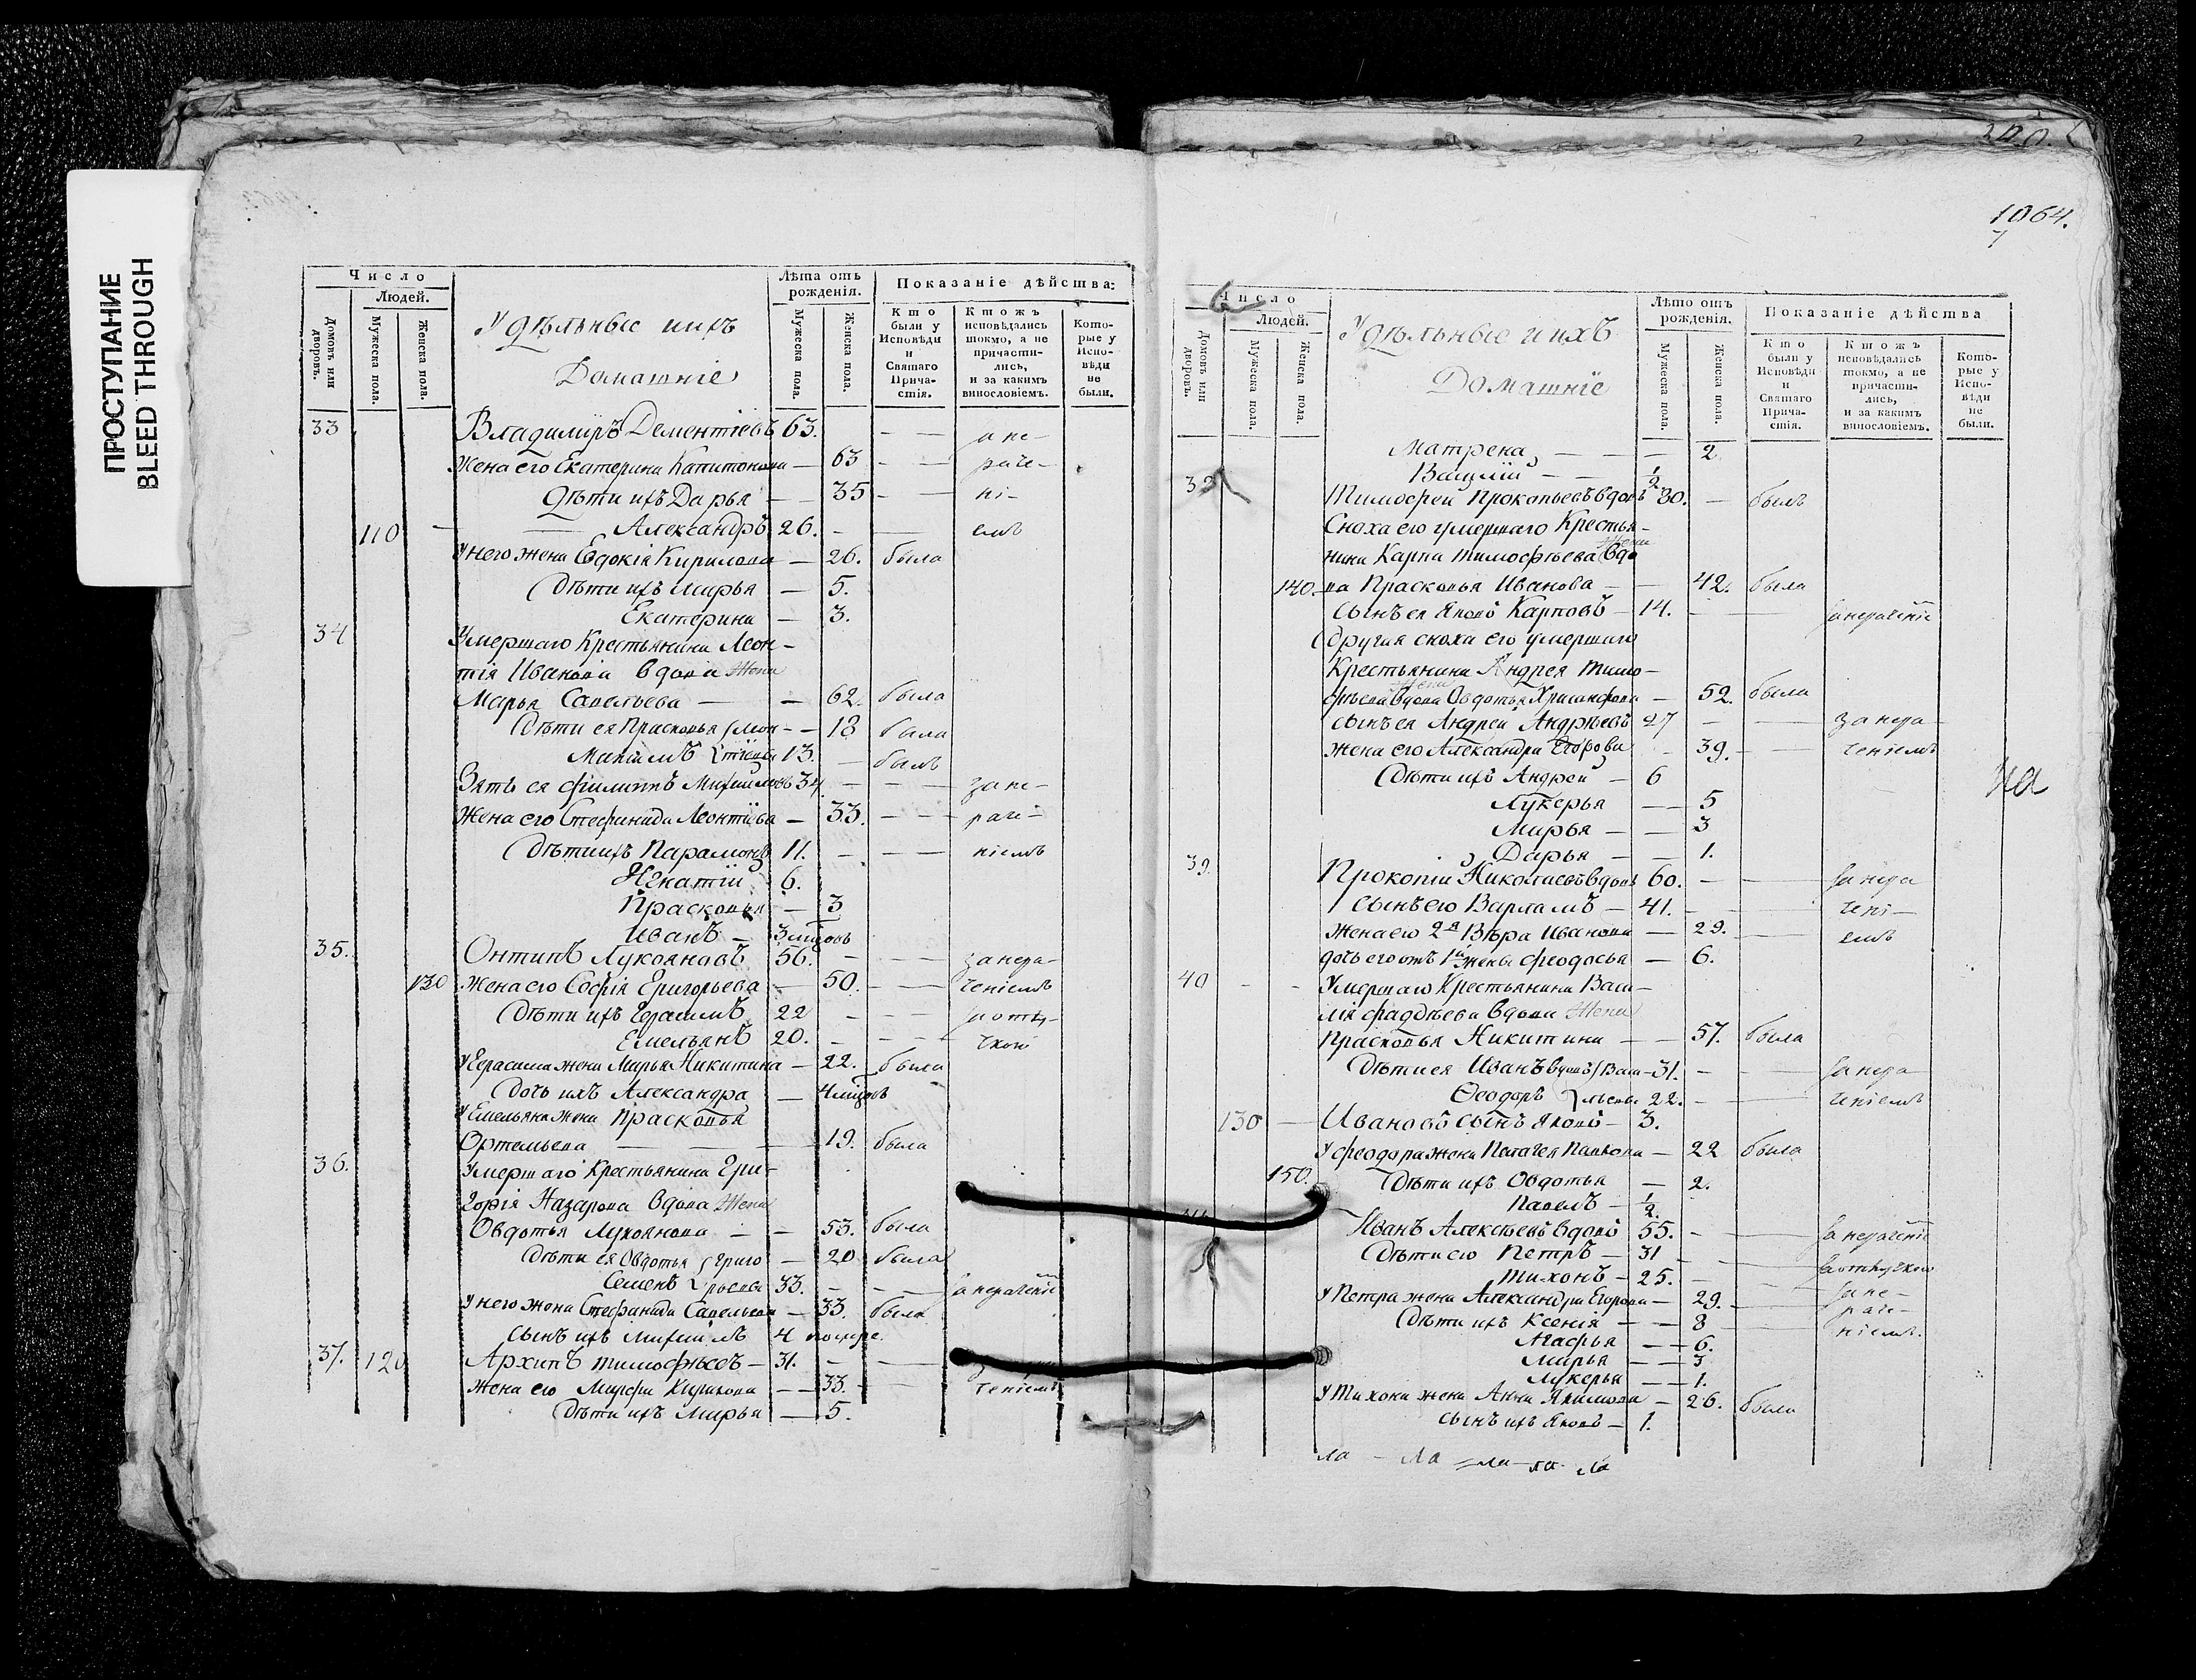 ПРОСТУПАНИЕ
BLEED THROUGH
Число
Людей.
Домовъ или дворовъ.
Мужеска пола.
Женска пола.
Удѣльные и ихъ
Домашніе
Лѣта отъ рожденія.
Мужеска пола.
Женска пола.
Показаніе дѣйства:
Кто были у Исповѣди и Святаго Причастія.
Ктожъ исповѣдались токмо, а не причастились, и за какимъ винословіемъ.
Которые у Исповѣди не были.
33 Владимиръ Дементіевъ 63. — за не-
Жена его Екатерина Капитонова — 63 — раче-
Дѣти ихъ Дарья — 35 — ні-
110 — Александръ 26. — емъ
У него жена Евдокія Кирилова — 26. была
Дѣти ихъ Марья — 5.
Екатерина — 3.
34 Умершаго Крестьянина Леон-
тія Иванова вдова жена
Марья Савельева — 62. была
Дѣти ея Прасковья Леон- — 18 была
Максимъ тіевы 13. — былъ
Зять ея Филиппъ Михайловъ 34. — за не-
Жена его Стефанида Леонтіева — 33. — раче-
Дѣти ихъ Парамонъ 11. — ніемъ
Игнатій 6.
Прасковья — 3
Иванъ — 3 мцовъ
35. Онтипъ Лукояновъ 56. — за нера-
130 Жена его Софія Григорьева — 50. — ченіемъ
Дѣти ихъ Герасимъ 22 — за отлу-
Емельянъ 20. — чкою
У Герасима жена Марья Никитина — 22. была
Дочь ихъ Александра — 4 мцовъ
У Емельяна жена Прасковья
Ортемьева — 19. была
36. Умершаго Крестьянина Гри-
горія Назарова вдова жена
Овдотья Лукоянова — 53. была
Дѣти ея Овдотья Григо- — 20 была
Семенъ рьевы 33. — за нераченіемъ
У него жена Стефанида Савельева — 33. была
Сынъ ихъ Михаилъ 4
37. 120 Архипъ Тимофѣевъ — 31. —
Жена его Марфа — 33. — ченіемъ
Дѣти ихъ Марья — 5.
1064.
Число
Людей.
Домовъ или дворовъ.
Мужеска пола.
Женска пола.
Удѣльные и ихъ
Домашніе
Лѣто отъ рожденія.
Мужеска пола.
Женска пола.
Показаніе дѣйства
Кто были у Исповѣди и Святаго Причастія.
Ктожъ исповѣдались токмо, а не причастились, и за какимъ винословіемъ.
Которые у Исповѣди не были.
Матрена — 2
Василій — 1/2
38 Тимофей Прокопьевъ вдовъ 80. — былъ
Сноха его умершаго Крестья-
нина Карпа Тимофѣева вдо жена
140. ва Прасковья Иванова — 42. была
Сынъ ея Яковъ Карповъ — 14. — за нераченіемъ
Другая сноха его умершаго
Крестьянина Андрея Тимо-
фѣева вдова жена Овдотья Хрисанфова — 52. была
Сынъ ея Андрей Андрѣевъ 27 — за нера-
Жена его Александра Егорова — 39. — ченіемъ
Дѣти ихъ Андрей — 6
Лукерья — 5
Марья — 3
Дарья — 1.
39. Прокопій Николаевъ вдовъ 60. — за нера
Сынъ его Варламъ — 41. — чені-
Жена его 2я Вѣра Иванова — 29. — емъ
дочь его отъ 1й жены Феодосья — 6.
40 Умершаго Крестьянина Васи-
лія Фаддѣева вдова жена
Прасковья Никитина — 57. была
Дѣти ея Иванъ вдовъ Васи- 31. — за нера
Ѳеодоръ льевы 22. — ченіемъ
130 — Ивановъ сынъ Яковъ — 3.
У Феодора жена Пелагея Павлова — 22 была
150. Дѣти ихъ Овдотья — 2.
Павелъ — 1/2.
Иванъ Алексѣевъ вдовъ 55. — за нераченіе
Дѣти его Петръ — 31 — за отлучкою
Тихонъ — 25. —
У Петра жена Александра Егорова — 29. — за не-
раче-
Дѣти ихъ Ксенія — 8 — ніемъ.
Агафья — 6.
Марья — 3
Лукерья — 1.
У Тихона жена Анна Якимова — 26. была
Сынъ ихъ Яковъ — 1.
на
ла - ла - ла - ла - ла